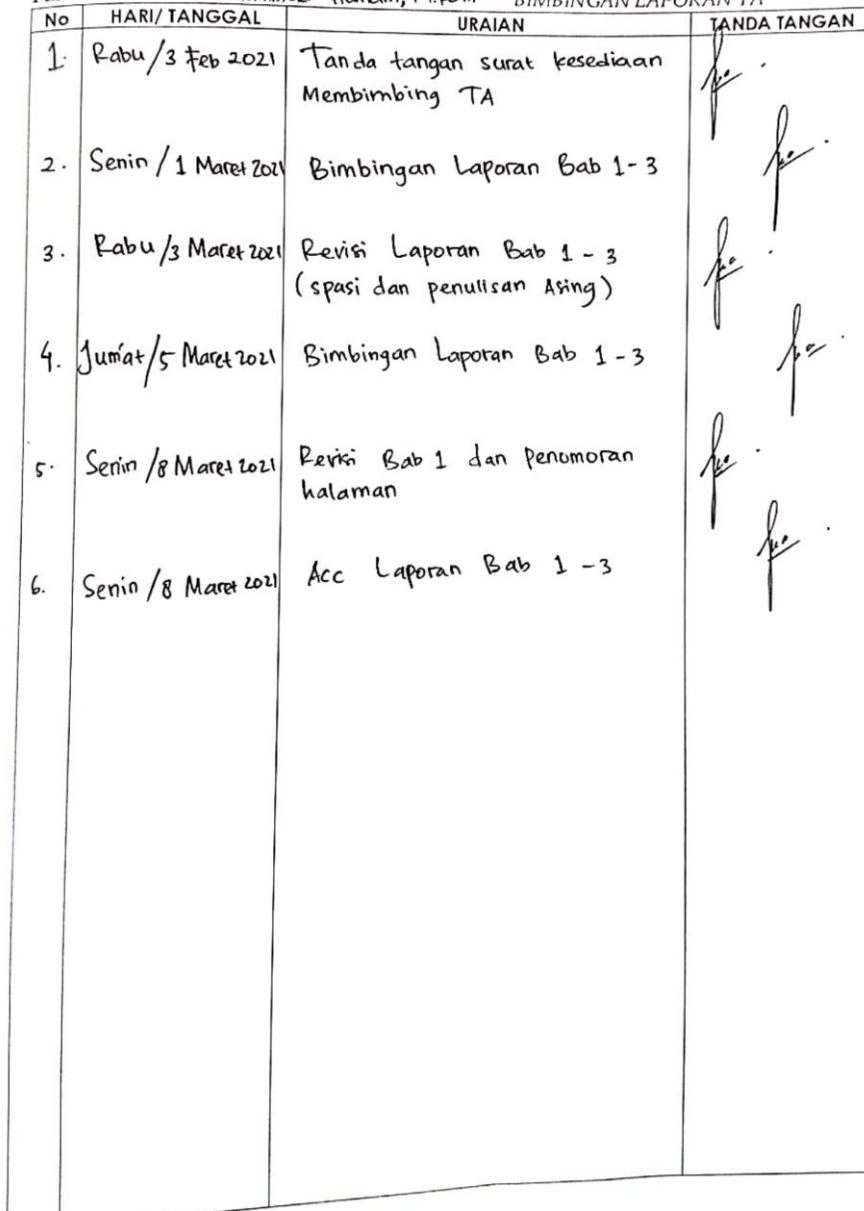 BIMBINGAN LAPORAN TA
No HARI/TANGGAL URAIAN TANDA TANGAN
1. Rabu/3 Feb 2021 Tanda tangan surat kesediaan
Membimbing TA
2. Senin/1 Maret 2021 Bimbingan Laporan Bab 1-3
3. Rabu/3 Maret 2021 Revisi Laporan Bab 1-3
(spasi dan penulisan Asing)
4. Jum'at/5 Maret 2021 Bimbingan Laporan Bab 1-3
5. Senin/8 Maret 2021 Revisi Bab 1 dan Penomoran
halaman
6. Senin/8 Maret 2021 Acc Laporan Bab 1-3